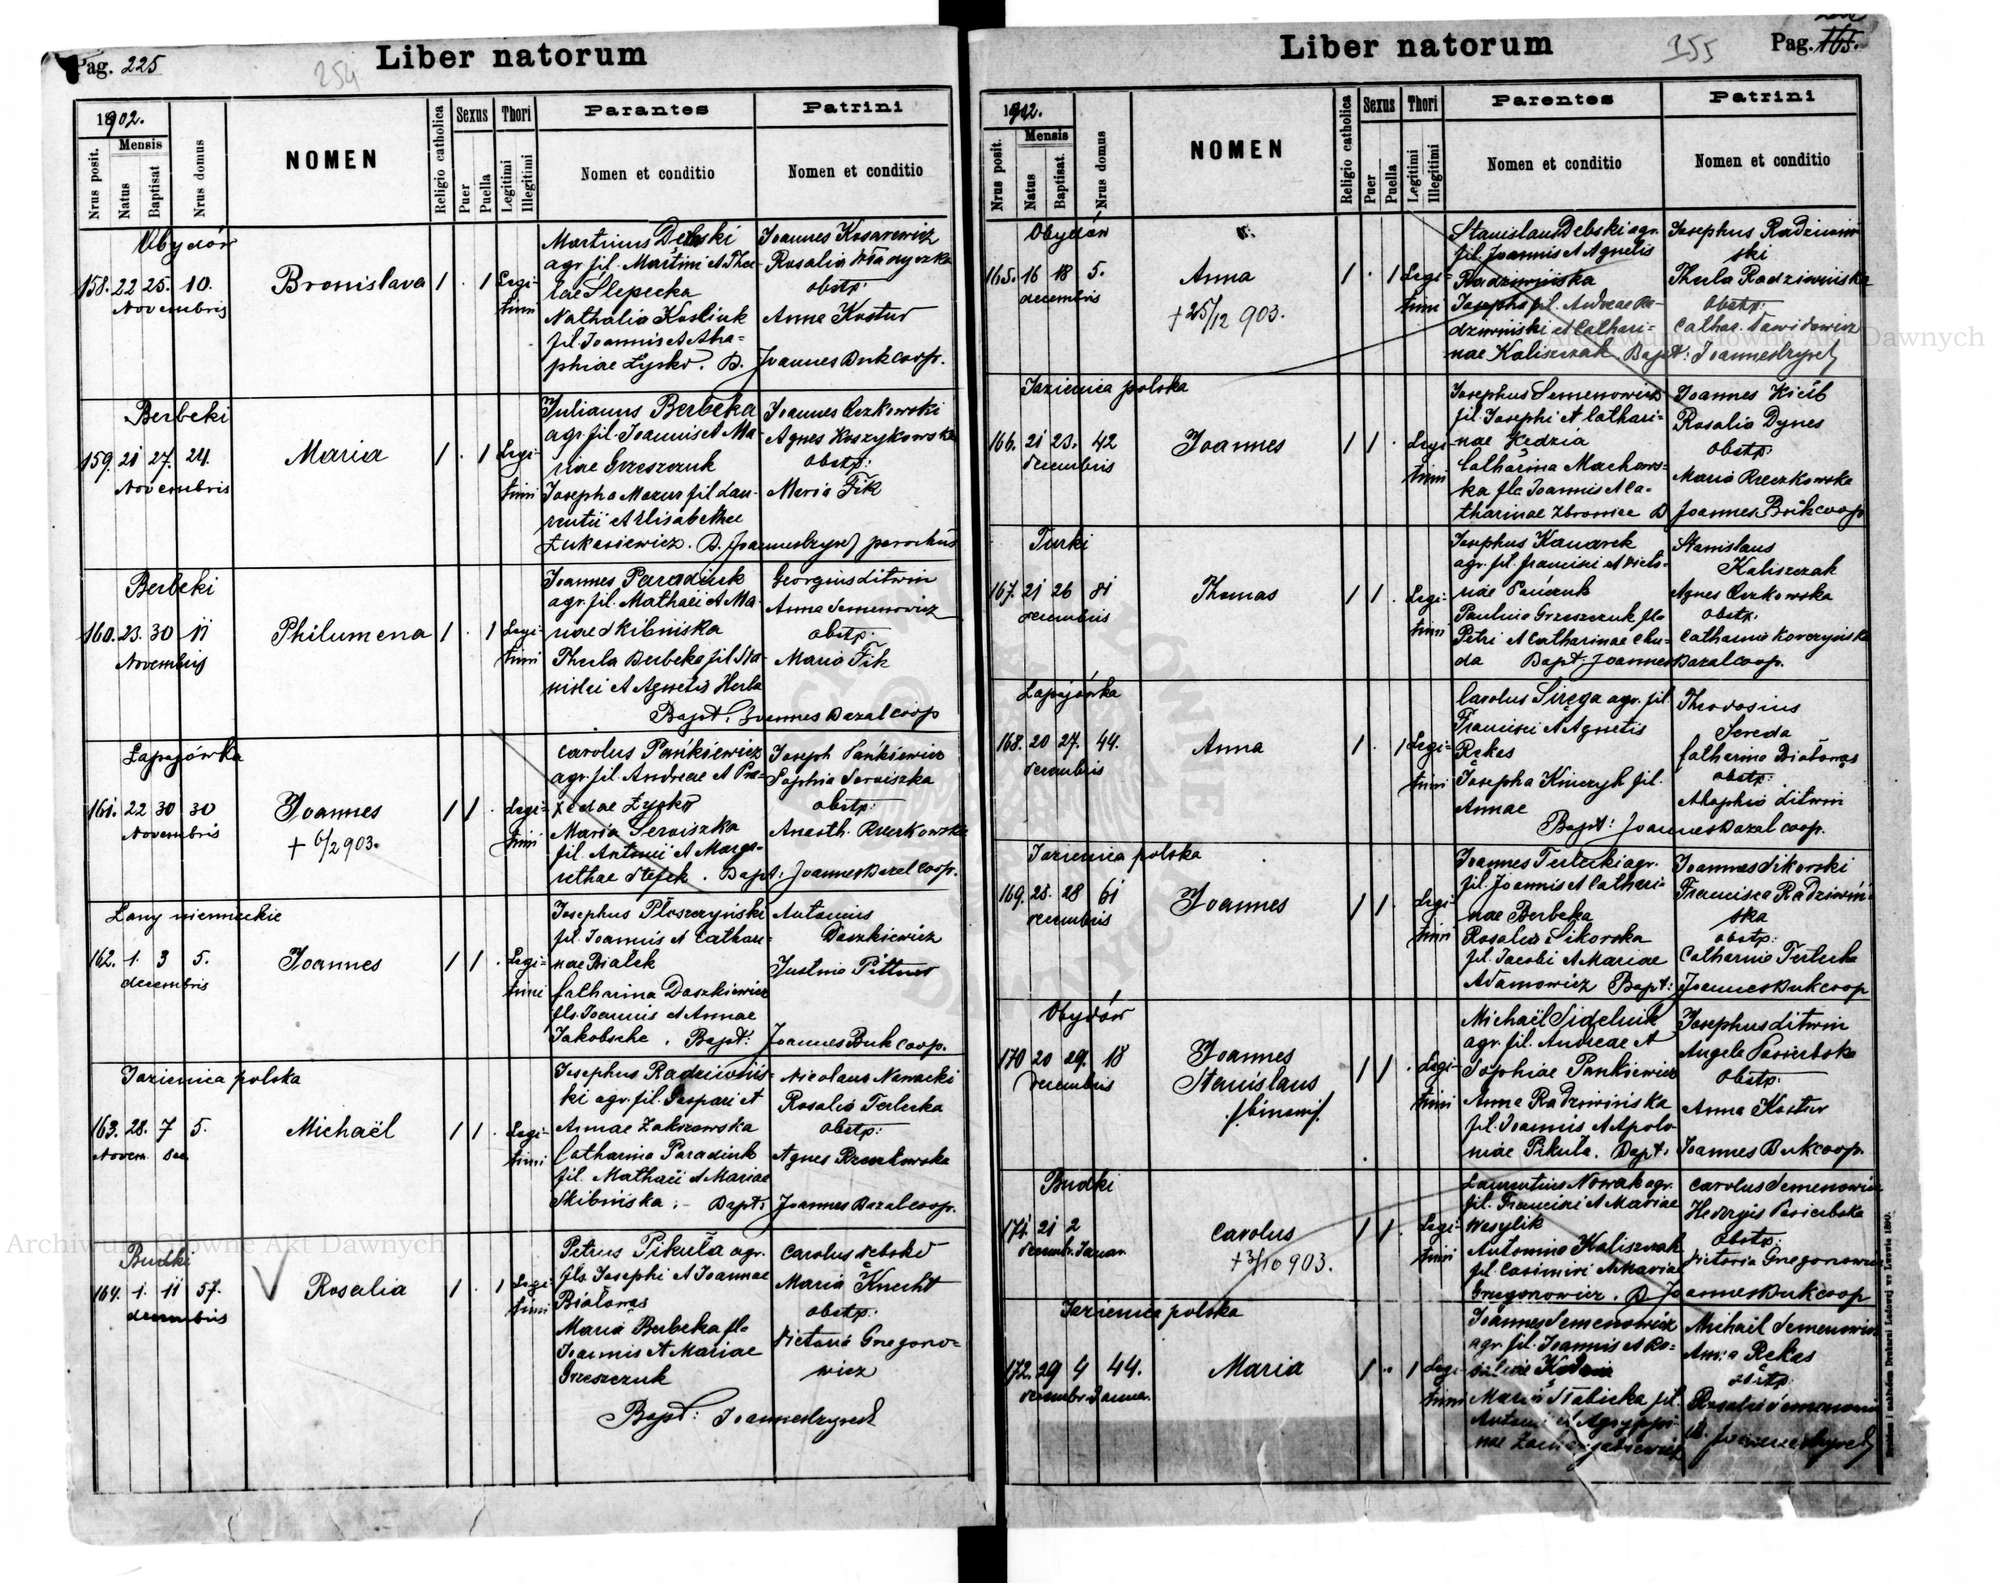 Pag. 225
254
Liber natorum
1902.
Nrus posit.
Mensis
Natus
Baptisat
Nrus domus
NOMEN
Religio catholica
Sexus
Puer
Puella
Thori
Legitimi
Illegitimi
Parantes
Nomen et conditio
Patrini
Nomen et conditio
Obydów
158. 22 25. 10.
Novembris
Bronislava
1 . 1 Legi-
timi
Martinus Dębski
agr. fil. Martini et The-
clae Slepecka
Nathalia Kostiuk
fil. Joannis et Aga-
phiae Łysko. B.
Joannes Kosarewicz
Rosalia
obstp:
Anna Kostur
Joannes Buk coop.
Berbeki
159. 21 27. 24.
Novembris
Maria
1 . 1 Legi-
timi
Julianus Berbeka
agr. fil. Joannis et Ma-
riae Grzeszczuk
Josepha Mazur fil. Lau-
rentii et Elisabethae
Łukasiewicz. B. Joannes parochus
Joannes Oczkowski
Agnes Koszykowska
obstp:
Maria Fik
Berbeki
160. 23. 30 11
Novembris
Philumena
1 . 1 Legi-
timi
Joannes Paradiuk
agr. fil. Mathaei et Ma-
riae Skibińska
Thecla Berbeka fil. Sta-
nislai et Agnetis Herba
Bapt. Joannes Bazal coop
Georgius Litwin
Anna Semenowicz
obstp:
Maria Fik
Łapajówka
161. 22 30 30
Novembris
Joannes
+ 6/2 903.
1 1 . Legi-
timi
Carolus Pańkiewicz
agr. fil. Andreae et Pra-
xedae Łysko
Maria Serwiszka
fil. Antonii et Marga-
rethae Stefek. Bapt: Joannes Bazal coop.
Joseph Pańkiewicz
Sophia Serwiszka
obstp:
Anasth. Rzeczkowska
Lany niemieckie
162. 1. 3 5.
decembris
Joannes
1 1 . Legi-
timi
Josephus Płoszczyński
fil. Joannis et Cathari-
nae Białek
Catharina Daszkiewicz
fla. Joannis et Annae
Jakobsche. Bapt: Joannes Buk coop.
Antonius
Daszkiewicz
Justina Pittner
Jazienica polska
163. 28. 7 5.
Novem. Dec
Michaël
1 1 . Legi-
timi
Josephus Radziwiń-
ski agr. fil. Gaspari et
Annae Zakrzewska
Catharina Paradiuk
fil. Mathaei et Mariae
Skibińska. Bapt: Joannes Bazal coop.
Nicolaus Nawacki
Rosalia Terlecka
obstp:
Agnes Rzeczkowska
Budki
164. 1. 11 57.
decembris
Rosalia
1 . 1 Legi-
timi
Petrus Pikuła agr.
fls. Josephi et Joannae
Białowąs
Maria Berbeka fla
Joannis et Mariae
Grzeszczuk
Bapt: Joannes
Carolus Debski
Maria Knecht
obstp:
Victoria Gregoro-
wicz
Liber natorum
255
Pag. 165.
1902.
Nrus posit.
Mensis
Natus
Baptisat.
Nrus domus
NOMEN
Religio catholica
Sexus
Puer
Puella
Thori
Legitimi
Illegitimi
Parentes
Nomen et conditio
Patrini
Nomen et conditio
Obydów
165. 16 18 5.
decembris
Anna
+ 25/12 903.
1 . 1 Legi-
timi
Stanislaus Debski agr.
fil. Joannis et Agnetis
Radziwińska
Josepha fil. Andreae Ra-
dziwiński et Cathari-
nae Kaliszczak. Bapt: Joannes
Josephus Radziwiń-
ski
Thecla Radziwińska
obstp:
Cathar. Dawidowicz
Jazienica polska
166. 21 23. 42
decembris
Joannes
1 1 . Legi-
timi
Josephus Semenowicz
fil. Josephi et Cathari-
nae Kędzia
Catharina Machows-
ka fla Joannis et Ca-
tharinae B Joannes Buk coop
Joannes Kiełb
Rosalia Dynes
obstp:
Maria Rzeczkowska
Turki
167. 21 26 81
decembris
Thomas
1 1 . Legi-
timi
Josephus Kanarek
agr. fil. Francisci et Victo-
riae Pańczuk
Paulina Grzeszczuk fla
Petri et Catharinae Chu-
da Bapt: Joannes Bazal coop.
Stanislaus
Kaliszczak
Agnes Oczkowska
obstp:
Catharina Korczyńska
Łapajówka
168. 20 27. 44.
decembris
Anna
1 . 1 Legi-
timi
Carolus Siręga agr. fil.
Francisci et Agnetis
Rękas
Josepha Kmeryk fil.
Annae
Bapt: Joannes Bazal coop.
Theodosius
Sereda
Catharina Białowąs
obstp:
Ahaphia Litwin
Jazienica polska
169. 25. 28 61
decembris
Joannes
1 1 . Legi-
timi
Joannes Terlecki agr.
fil. Joannis et Cathari-
nae Berbeka
Rosalia Sikorska
fil. Jacobi et Mariae
Adamowicz Bapt: Joannes Buk coop
Joannes Sikorski
Francisca Radziwiń-
ska
obstp:
Catharina Terlecka
Obydów
170 20 29. 18
decembris
Joannes
Stanislaus
/binomi/.
1 1 . Legi-
timi
Michaël Sidelnik
agr. fil. Andreae et
Sophiae Pańkiewicz
Anna Radziwińska
fil. Joannis et Apolo-
niae Pikuła. Bapt: Joannes Buk coop.
Josephus Litwin
Angela Pasierbska
obstp:
Anna Kostur
Budki
171. 21 2
decembr. Januar.
Carolus
+ 3/10 903.
1 1 . Legi-
timi
Laurentius Nowak agr.
fil. Francisci et Mariae
Wasylik
Antonina Kaliszczak
fil. Casimiri et Maria
Gregorowicz. B Joannes Buk coop
Carolus Semenowicz
Hedvigis Pasierbska
obstp:
Victoria Gregorowicz
Jazienica polska
172. 29 4 44.
decembr. Janua.
Maria
1 . 1 Legi-
timi
Joannes Semenowicz
agr. fil. Joannis et Ro-
saliae Kędzia
Maria Słabicka fil.
Antoni et Agryppi-
nae
Michaël Semenowicz
Anna Rekas
obstp:
Rosalia Semenowicz
B. Joannes
Drukiem i nakładem Drukarni Ludowej we Lwowie 1890.
Archiwum Główne Akt Dawnych
Archiwum Główne Akt Dawnych